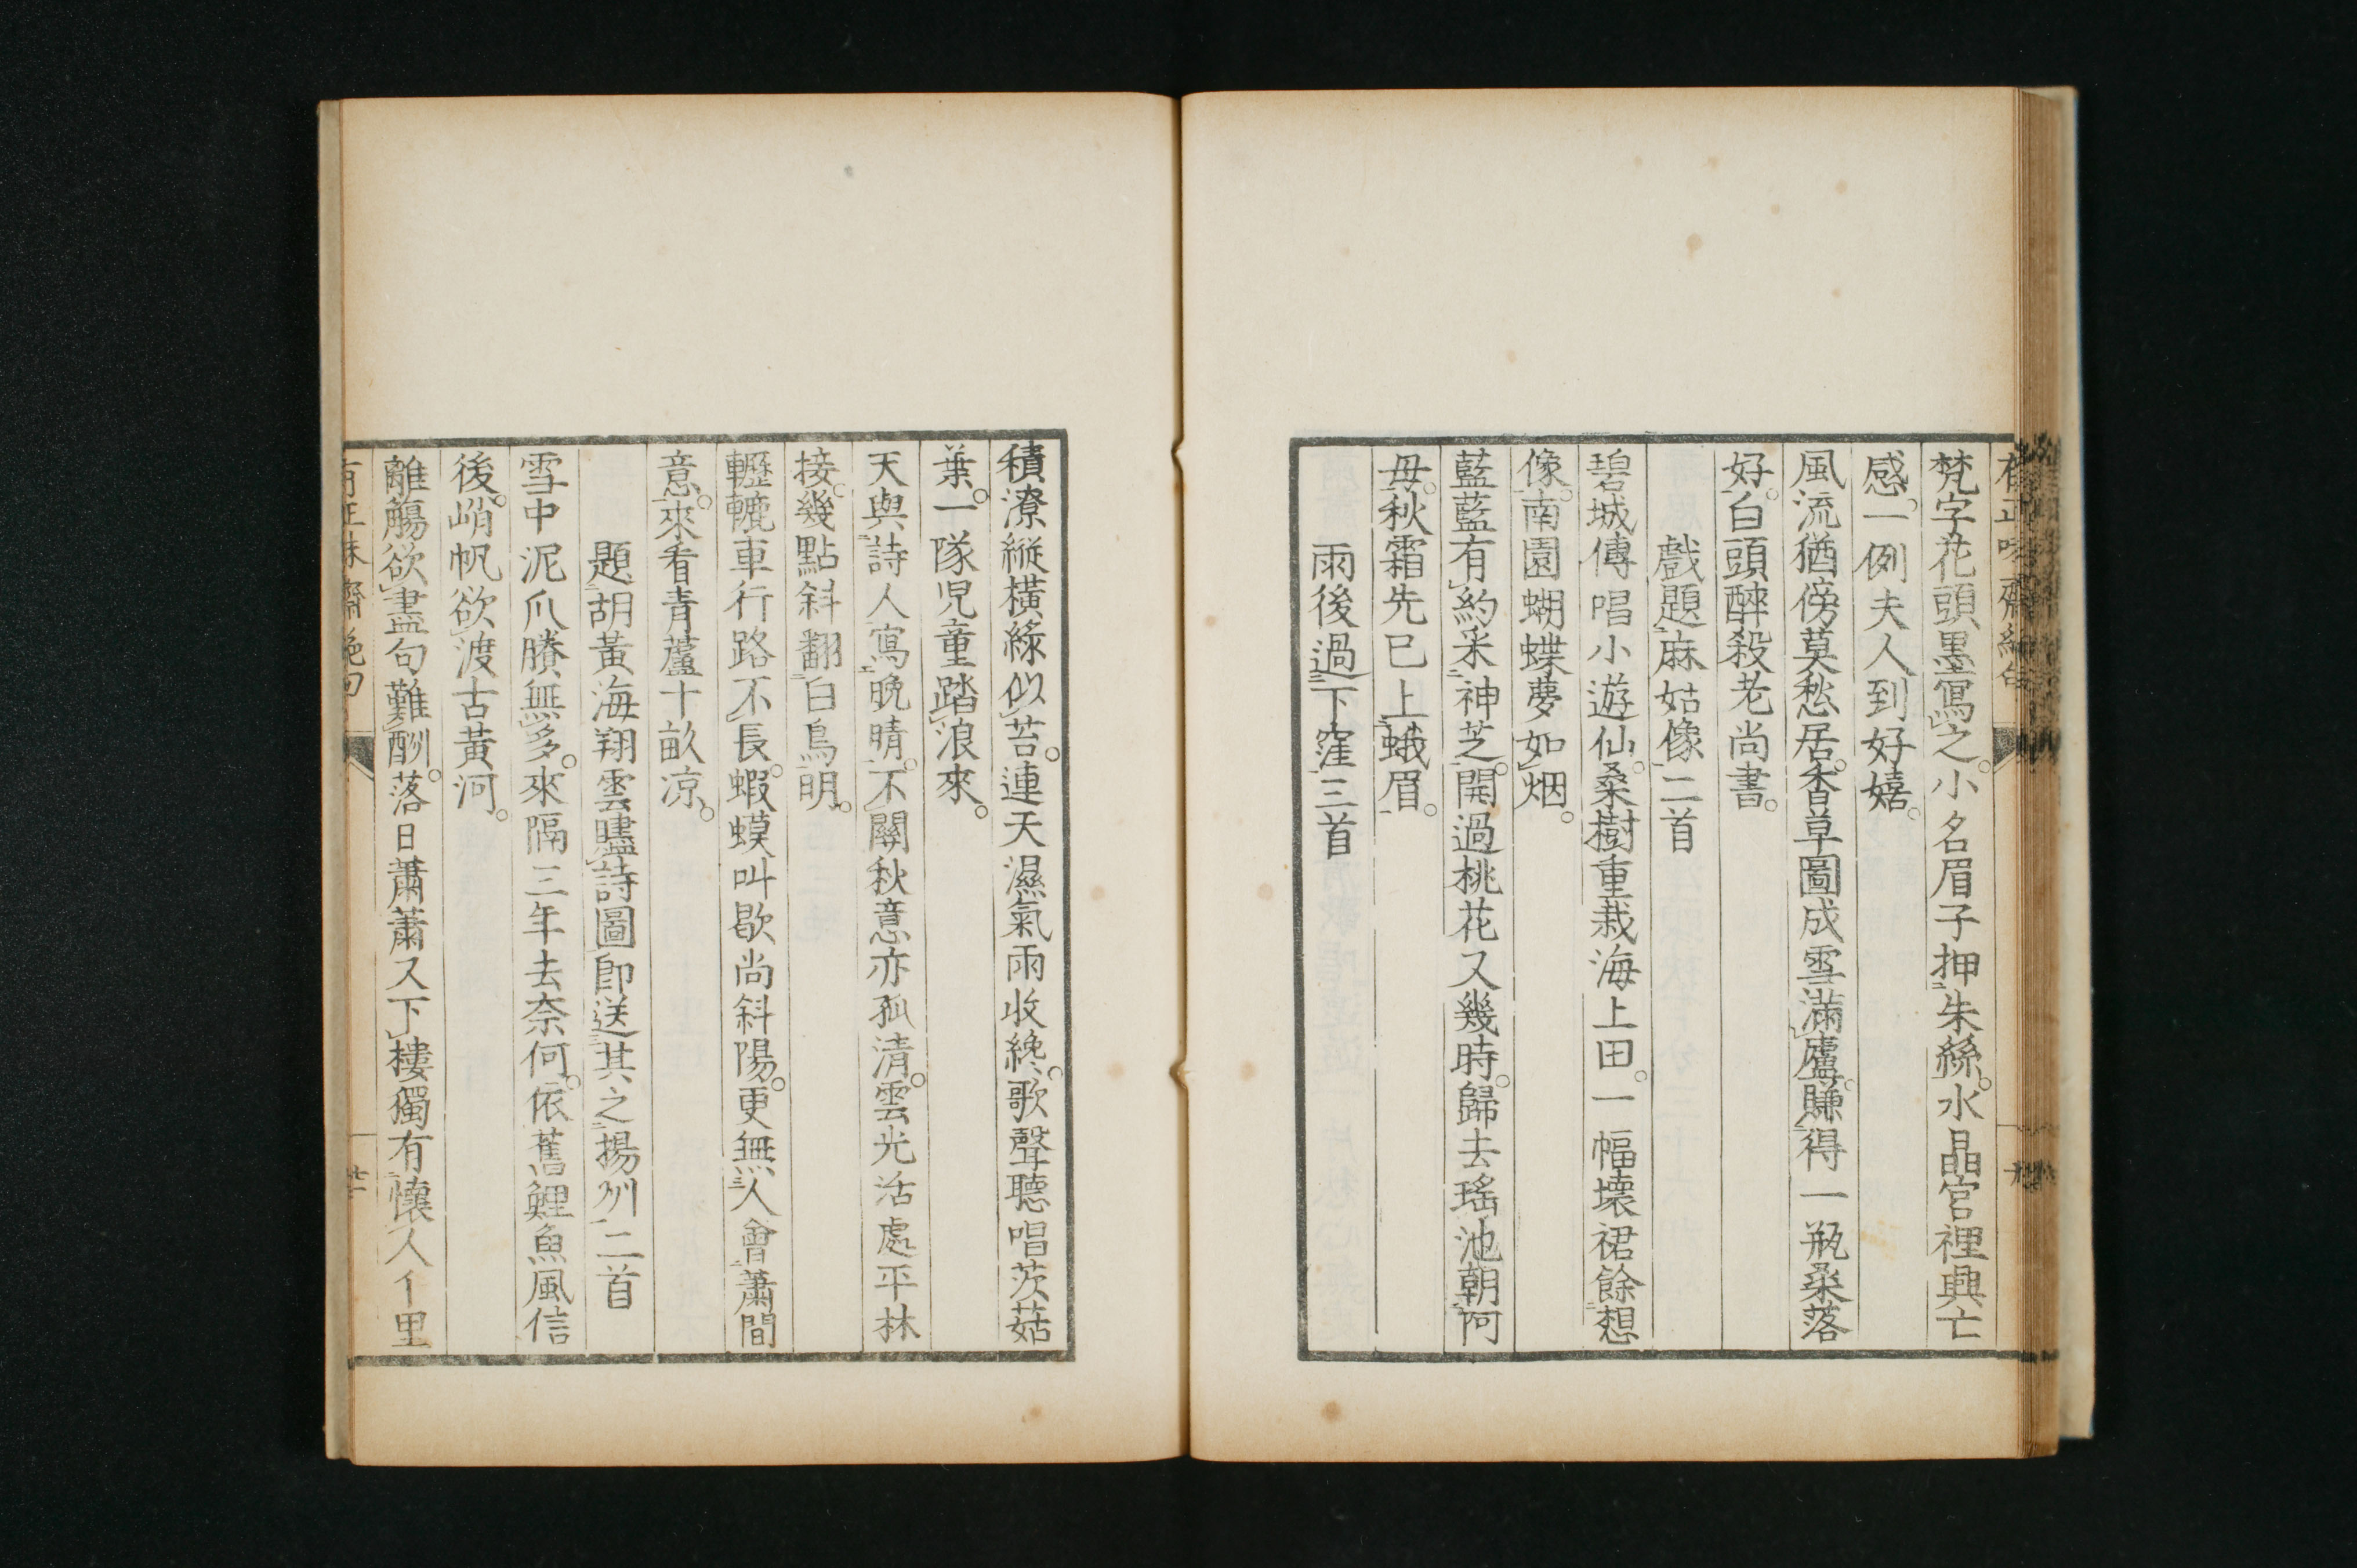 梵字花頭墨寫之。小名眉子押朱絲。水晶宮裡興亡
感。一例夫人到好嬉。
風流猶傍莫愁居。香草圖成雪滿廬。賺得一瓶桑落
好。白頭醉殺老尚書。
戲題麻姑像二首
碧城傳唱小遊仙。桑樹重栽海上田。一幅壞裙餘想
像。南園蝴蝶夢如烟。
藍藍有約采神芝。開過桃花又幾時。歸去瑤池朝阿
母。秋霜先已上蛾眉。
雨後過下窪三首
積潦縱橫綠似苔。連天濕氣雨收纔。歌聲聽唱茨菇
葉。一隊児童踏浪來。
天與詩人寫晚晴。不關秋意亦孤清。雲光活處平林
接。幾點斜翻白鳥明。
轣轆車行路不長。蝦蟆叫歇尚斜陽。更無人會蕭閒
意。來看青蘆十畝凉。
題胡黃海翔雲贐詩圖卽送其之揚州二首
雪中泥爪賸無多。來隔三年去奈何。依舊鯉魚風信
後。峭帆欲渡古黃河。
離觴欲盡句難酬。落日蕭蕭又下樓獨有懷人千里